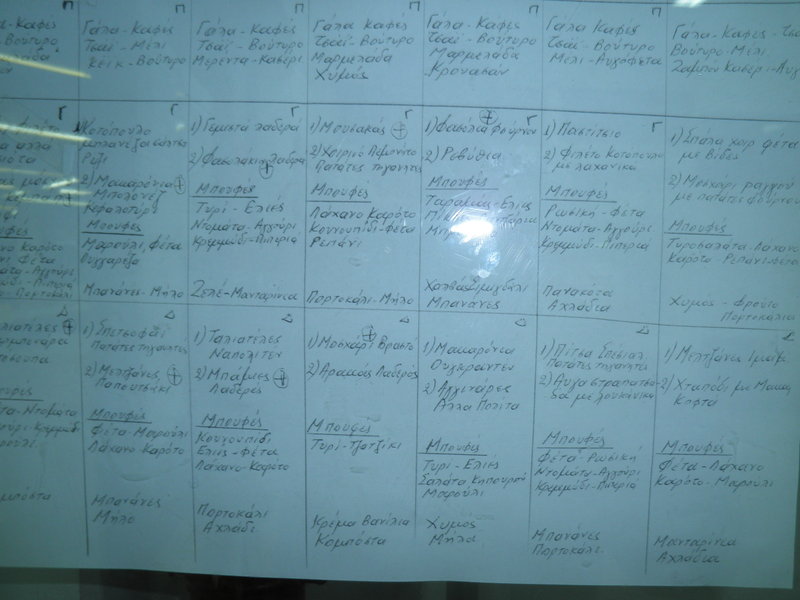 Π
Π
Π
Π
Π
Π
Π
Γάλα - Καφές
Τσάϊ - Μέλι
Κέικ - Βούτυρο
Γάλα - Καφές
Τσάϊ - Βούτυρο
Μερέντα - Κασέρι
Γάλα Καφές
Τσάϊ - Βούτυρο
Μαρμελάδα
Χυμός
Γάλα - Καφές
Τσάϊ - Βούτυρο
Μαρμελάδα
Κρουασάν
Γάλα Καφές
Τσάϊ Βούτυρο
Μέλι - Αυγόφετα
Γάλα - Καφές - Τσάϊ
Βούτυρο - Μέλι
Ζαμπόν Κασέρι - Αυγ
Γ
Κοτόπουλο
Ρύζι
2) Μακαρόνια
Μπολονέζ
Κεφαλοτύρι
Μπουφές
Μαρούλι, φέτα
Ουγγαρέζα
Μπανάνες - Μήλο
Γ
1) Γεμιστά λαδερά
2) Φασολάκια λαδερα
Μπουφές
Τυρί - Ελιές
Ντομάτα - Αγγούρι
Κρεμμύδι - Πιπεριά
Ζελέ - Μανταρίνια
Γ
1) Μουσακάς
2) Χοιρινό Λεμονάτο
Πατάτες τηγανητές
Μπουφές
Λάχανο Καρότο
Κουνουπίδι - Φέτα
Ρεπάνι
Πορτοκάλι - Μήλο
Γ
1) Φασόλια φούρνου
2) Ρεβύθια
Μπουφές
Ταραμάς - Ελιές
Χαλβάς
Μπανάνες
Γ
1) Παστίτσιο
2) Φιλέτο Κοτόπουλο
με λαχανικά
Μπουφές
Ρώσικη - Φέτα
Ντομάτα - Αγγούρι
Κρεμμύδι - Πιπεριά
Πανακότα
Αχλάδια
1) Σπάλα χοιρ φέτα
με βίδες
2) Μοσχάρι ραγκού
με πατάτες φούρνου
Μπουφές
Τυροσαλάτα - Λάχανο
Καρότο - Ρεπάνι - Φέτα
Χυμός - Φρούτο
Πορτοκάλια
Δ
1) Σπετσοφάϊ
Πατάτες τηγανητές
2) Μελτζάνες
Παπουτσάκι
Μπουφές
Φέτα - Μαρούλι
Λάχανο - Καρότο
Μπανάνες
Μήλο
Δ
1) Ταλιατέλες
Ναπολιτέν
2) Μπάμιες
Λαδερές
Μπουφές
Κουνουπίδι
Ελιές - Φέτα
Λάχανο - Καρότο
Πορτοκάλι
Αχλάδι
Δ
1) Μοσχάρι Βραστό
2) Αρακάς Λαδερός
Μπουφές
Τυρί - Τζατζίκι
Κρέμα Βανίλια
Κομπόστα
Δ
1) Μακαρόνια
Ογκρατέν
2) Αγκινάρες
Αλλά Πολίτα
Μπουφές
Τυρί - Ελιές
Σαλάτα Κηπουρού
Μαρούλι
Χυμός
Μήλα
Δ
1) Πίτσα Σπέσιαλ
Πατάτες τηγανητές
2) Αυγά στραπατσά-
δα με λουκάνικα
Μπουφές
Φέτα - Ρώσικη
Ντομάτα - Αγγούρι
Κρεμμύδι - Πιπεριά
Μπανάνες
Πορτοκάλι
Δ
1) Μελτζάνα Ιμάμ
2) Χταπόδι με Μακαρ
Κοφτό
Μπουφές
Φέτα - Λάχανο
Καρότο - Μαρούλι
Μανταρίνια
Αχλάδια